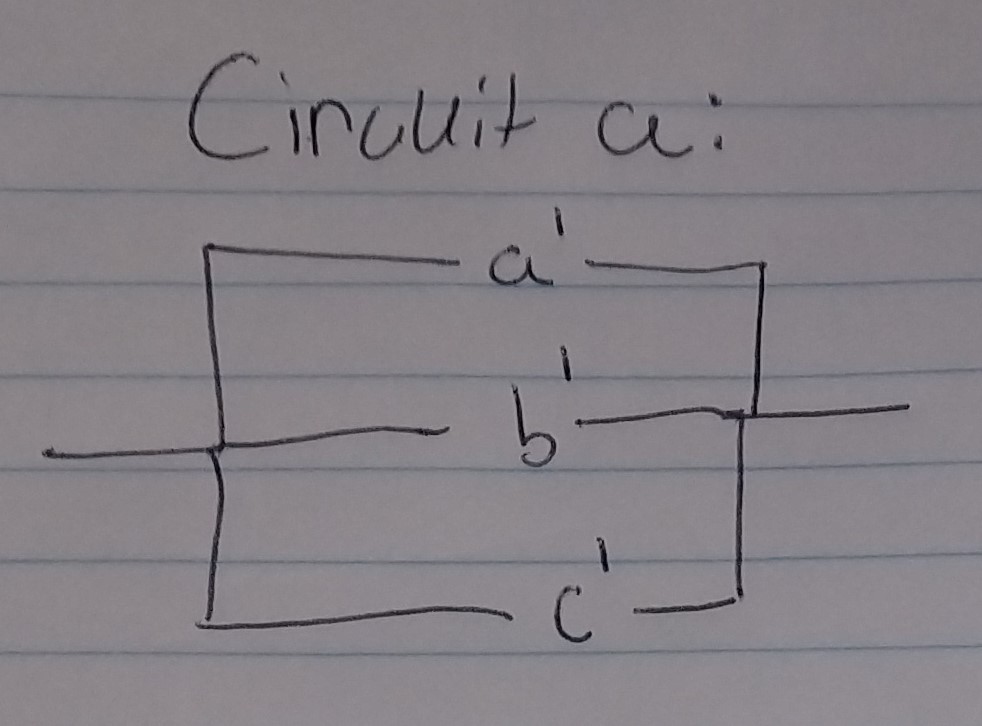 Circuit a:
a'
b'
c'